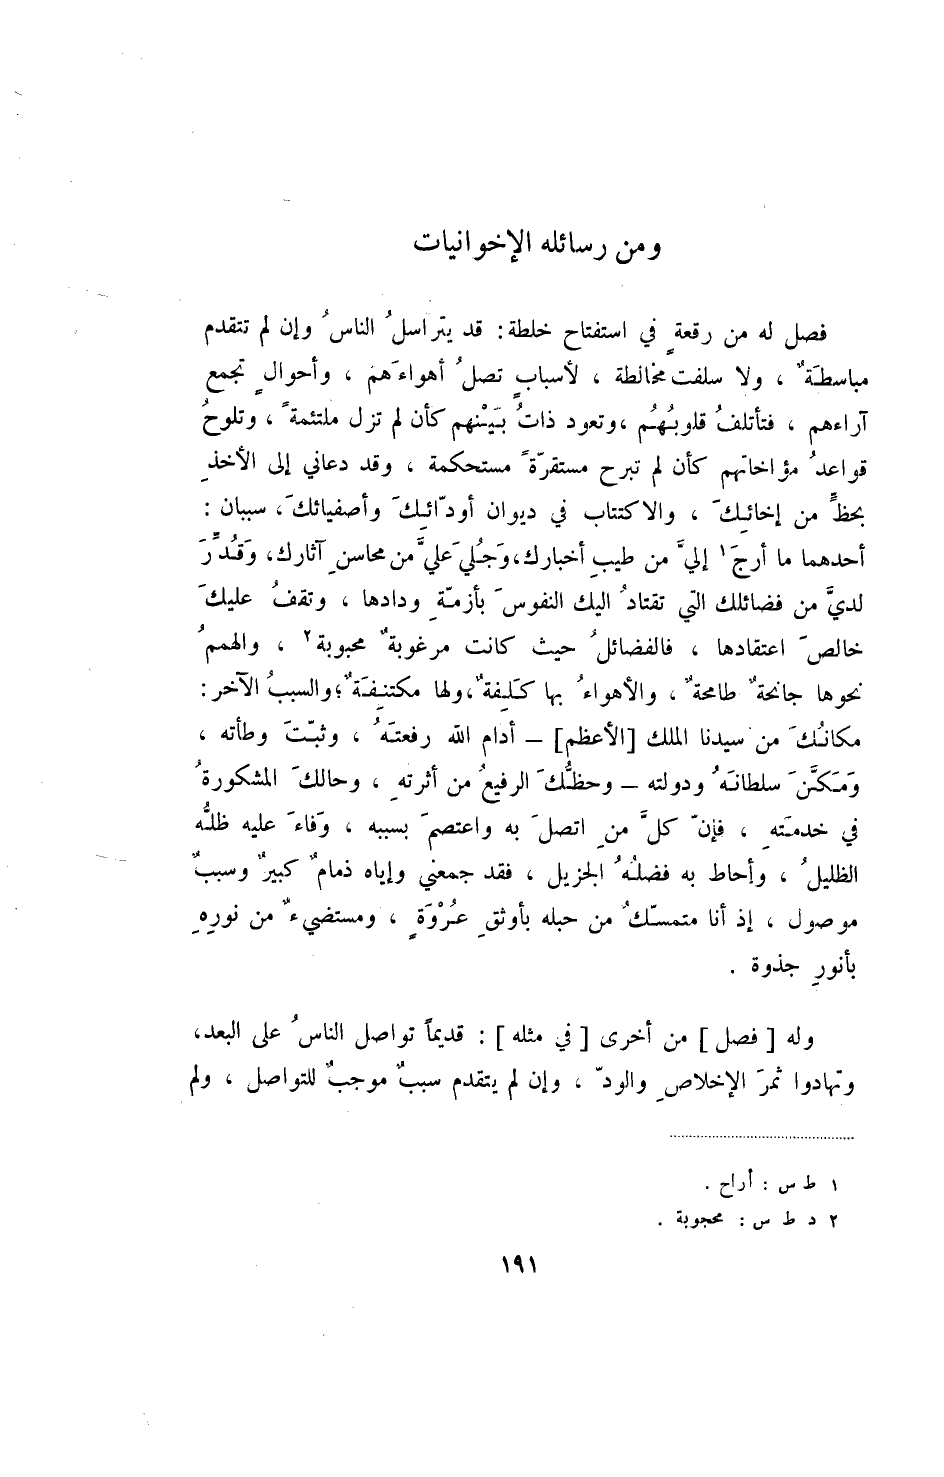 ومن رسائله الإخوانيات
فصل له من رقعةٍ في استفتاح خلطة : قد يتراسلُ الناسُ وإن لم تتقدم
مباسطَةٌ ، ولا سلفت مخالطة ، لأسبابٍ تصلُ أهواءَهم ، وأحوالٍ تجمع
آراءهم ، فتأتلفُ قلوبُهُم ، وتعود ذاتُ بَيْنهم كأن لم تزل ملتئمةً ، وتلوحُ
قواعدُ مؤاخاتهم كأن لم تبرح مستقرّةً مستحكمة ، وقد دعاني إلى الأخذِ
بحظٍّ من إخائِكَ ، والاكتتاب في ديوان أودّائِكَ وأصفيائكَ ، سببان :
أحدهما ما أرجَ١ إليَّ من طيبِ أخبارك، وَجُلِيَ عليَّ من محاسنِ آثارك، وَقُدِّرَ
لديَّ من فضائلك التي تقتادُ اليك النفوسَ بأزمّةِ ودادها ، وتقفُ عليكَ
خالصَ اعتقادها ، فالفضائلُ حيث كانت مرغوبةٌ محبوبة٢ ، والهممُ
نحوها جانحةٌ طامحةٌ ، والأهواءُ بها كَلِيفةٌ ، ولها مكتنِفَةٌ ؛ والسببُ الآخر :
مكانُكَ من سيدنا الملك [الأعظم] – أدام الله رفعتَهُ ، وثبّتَ وطأته ،
وَمَكَّنَ سلطانَهُ ودولته – وحظُّكَ الرفيعُ من أثرتهِ ، وحالكَ المشكورةُ
في خدمَتهِ ، فإنّ كلَّ منِ اتصلَ به واعتصمَ بسببه ، وَفاءَ عليه ظلُّه
الظليلُ ، وأحاط به فضلُهُ الجزيل ، فقد جمعني وإياه ذمامٌ كبيرٌ وسببٌ
موصول ، إذ أنا متمسّكٌ من حبله بأوثقِ عُرْوَةٍ ، ومستضيءٌ من نورِهِ
بأنورِ جذوة .
وله [ فصل ] من أخرى [ في مثله ] : قديماً تواصل الناسُ على البعد،
وتهادوا ثمرَ الإخلاصِ والودّ ، وإن لم يتقدم سببٌ موجبٌ للتواصل ، ولم
١ ط س : أراح .
٢ د ط س : محجوبة .
١٩١